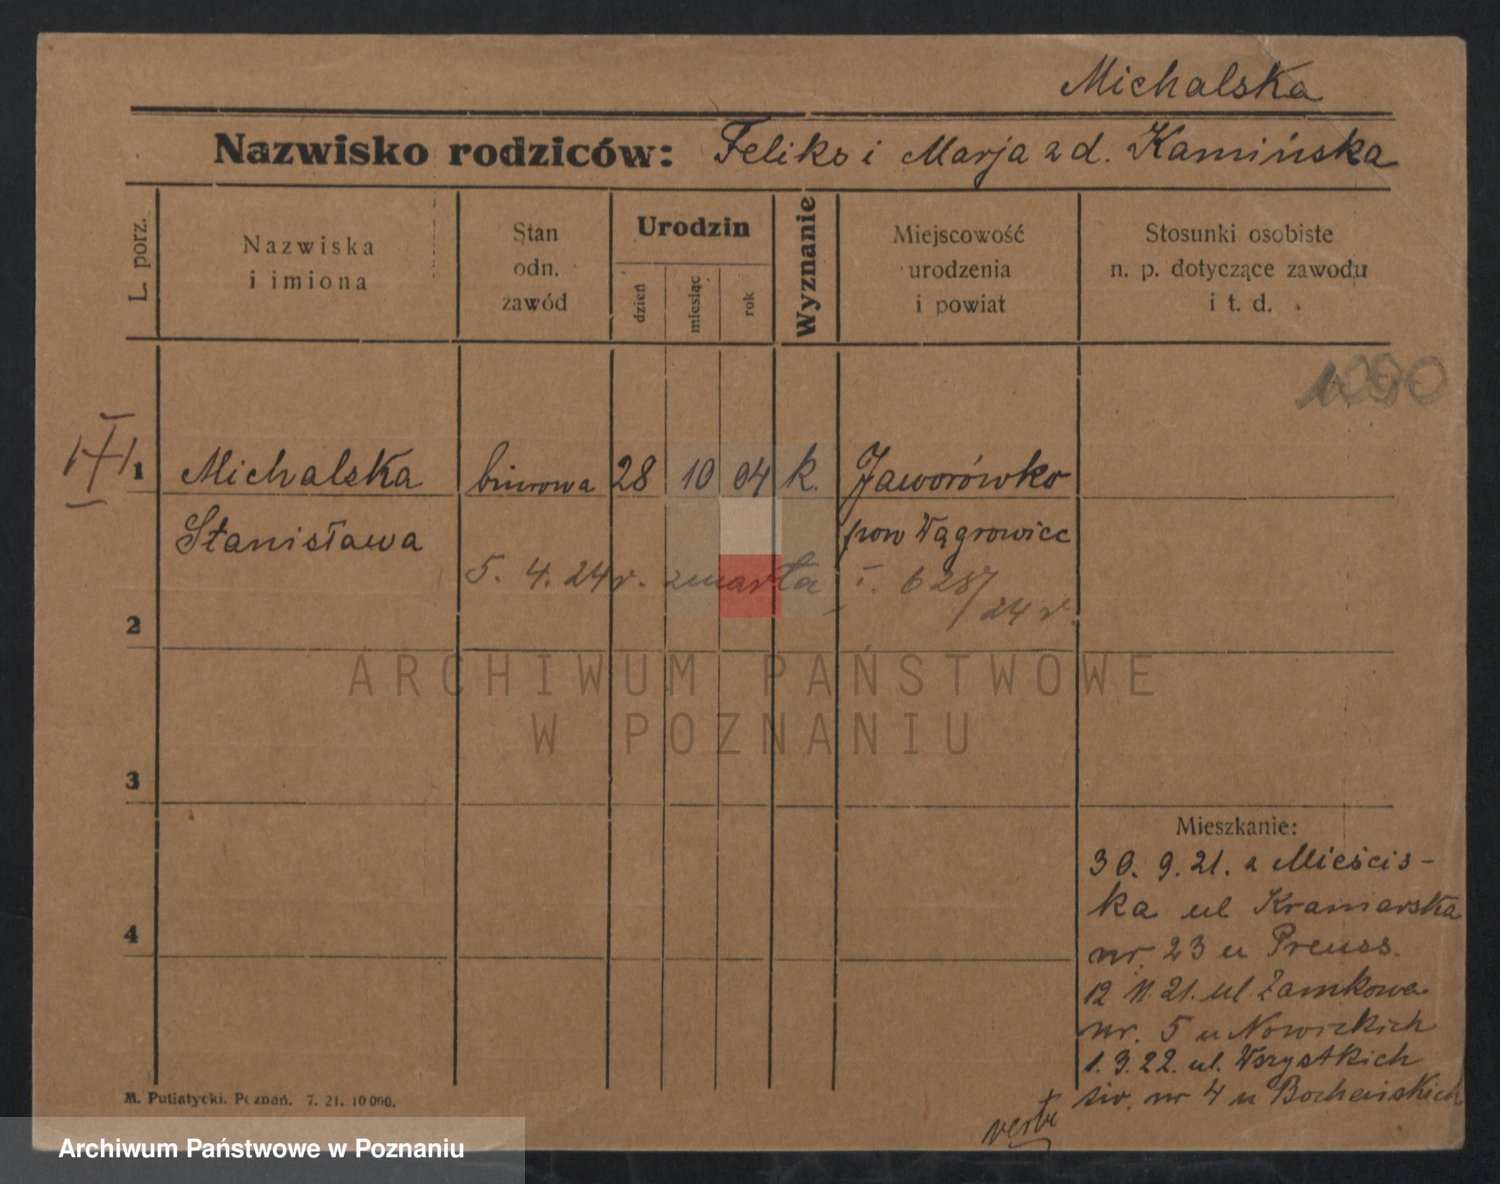 Michalska
Nazwisko rodziców: Feliks i Marja z d. Kamińska
L. porz.
Nazwiska
i imiona
Stan
odn.
zawód
Urodzin
dzień
miesiąc
rok
Wyznanie
Miejscowość
urodzenia
i powiat
Stosunki osobiste
n. p. dotyczące zawodu
i t. d.
1 Michalska biurowa 28 10 04 k. Jaworówko
Stanisława pow Wągrowiec
5. 4. 24 r. zmarła I. 628/24 r.
2
3
4
Mieszkanie:
30. 9. 21. z Mieścis-
ka ul Kramarska
nr. 23 u Preuss.
12 11. 21. ul Zamkowa
nr. 5 u Nowickich
1. 3. 22. ul. Wszystkich
św. nr 4 u Bocheńskich
verte
M. Putiatycki. Poznań. 7. 21. 10 000.
ARCHIWUM PAŃSTWOWE
W POZNANIU
Archiwum Państwowe w Poznaniu